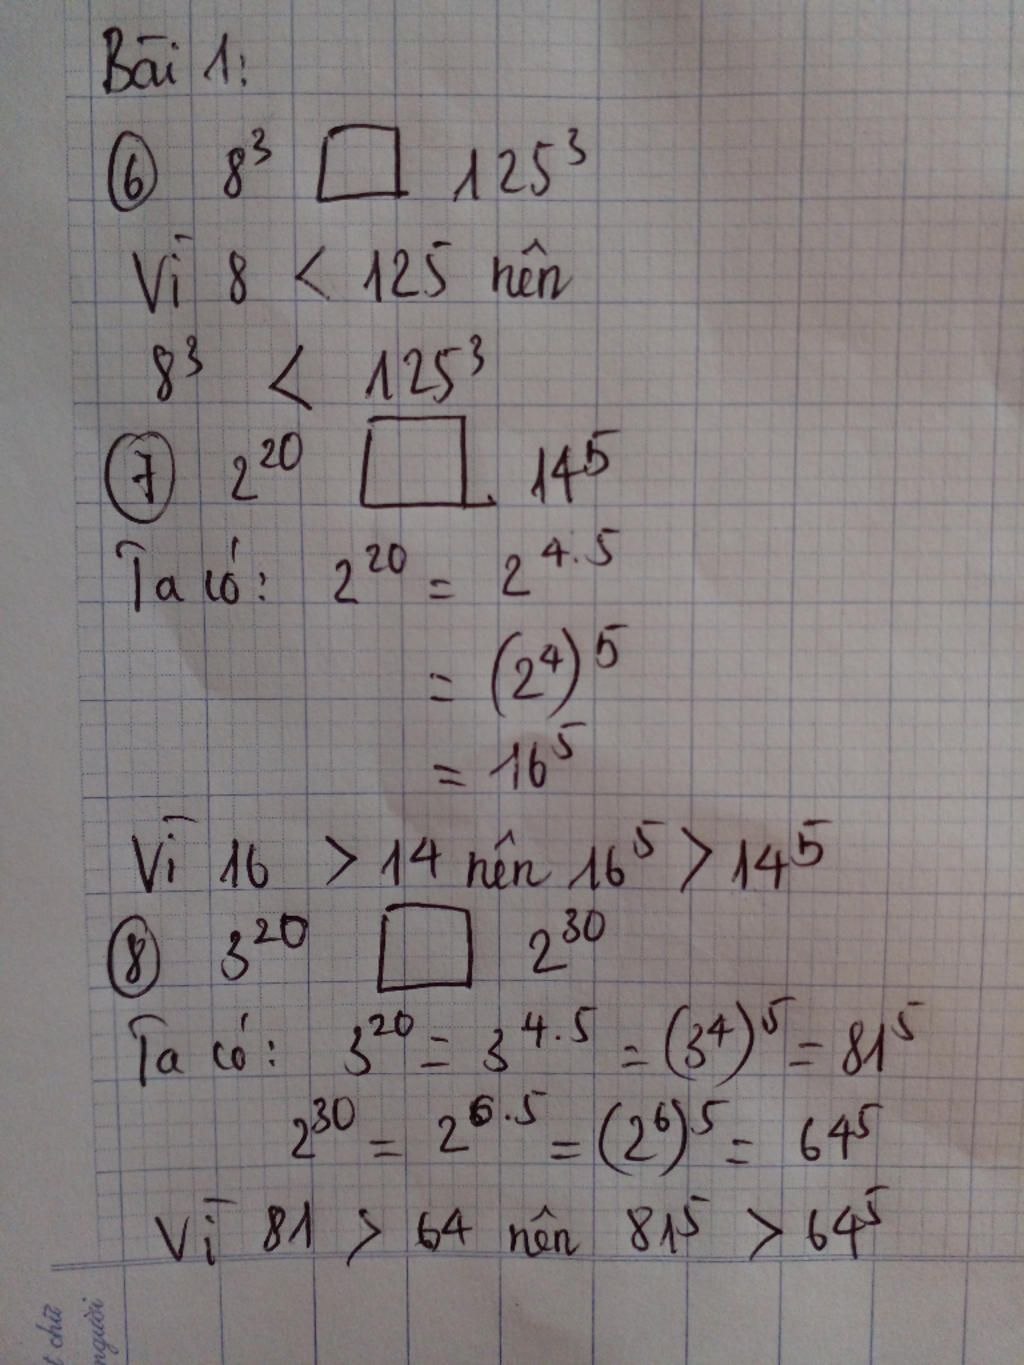 Bài 1:
⑥ 8³ □ 125³
Vì 8 < 125 nên
8³ < 125³
⑦ 2²⁰ □ 14⁵
Ta có: 2²⁰ = 2⁴·⁵
= (2⁴)⁵
= 16⁵
Vì 16 > 14 nên 16⁵ > 14⁵
⑧ 3²⁰ □ 2³⁰
Ta có: 3²⁰ = 3⁴·⁵ = (3⁴)⁵ = 81⁵
2³⁰ = 2⁶·⁵ = (2⁶)⁵ = 64⁵
Vì 81 > 64 nên 81⁵ > 64⁵
chữ
người